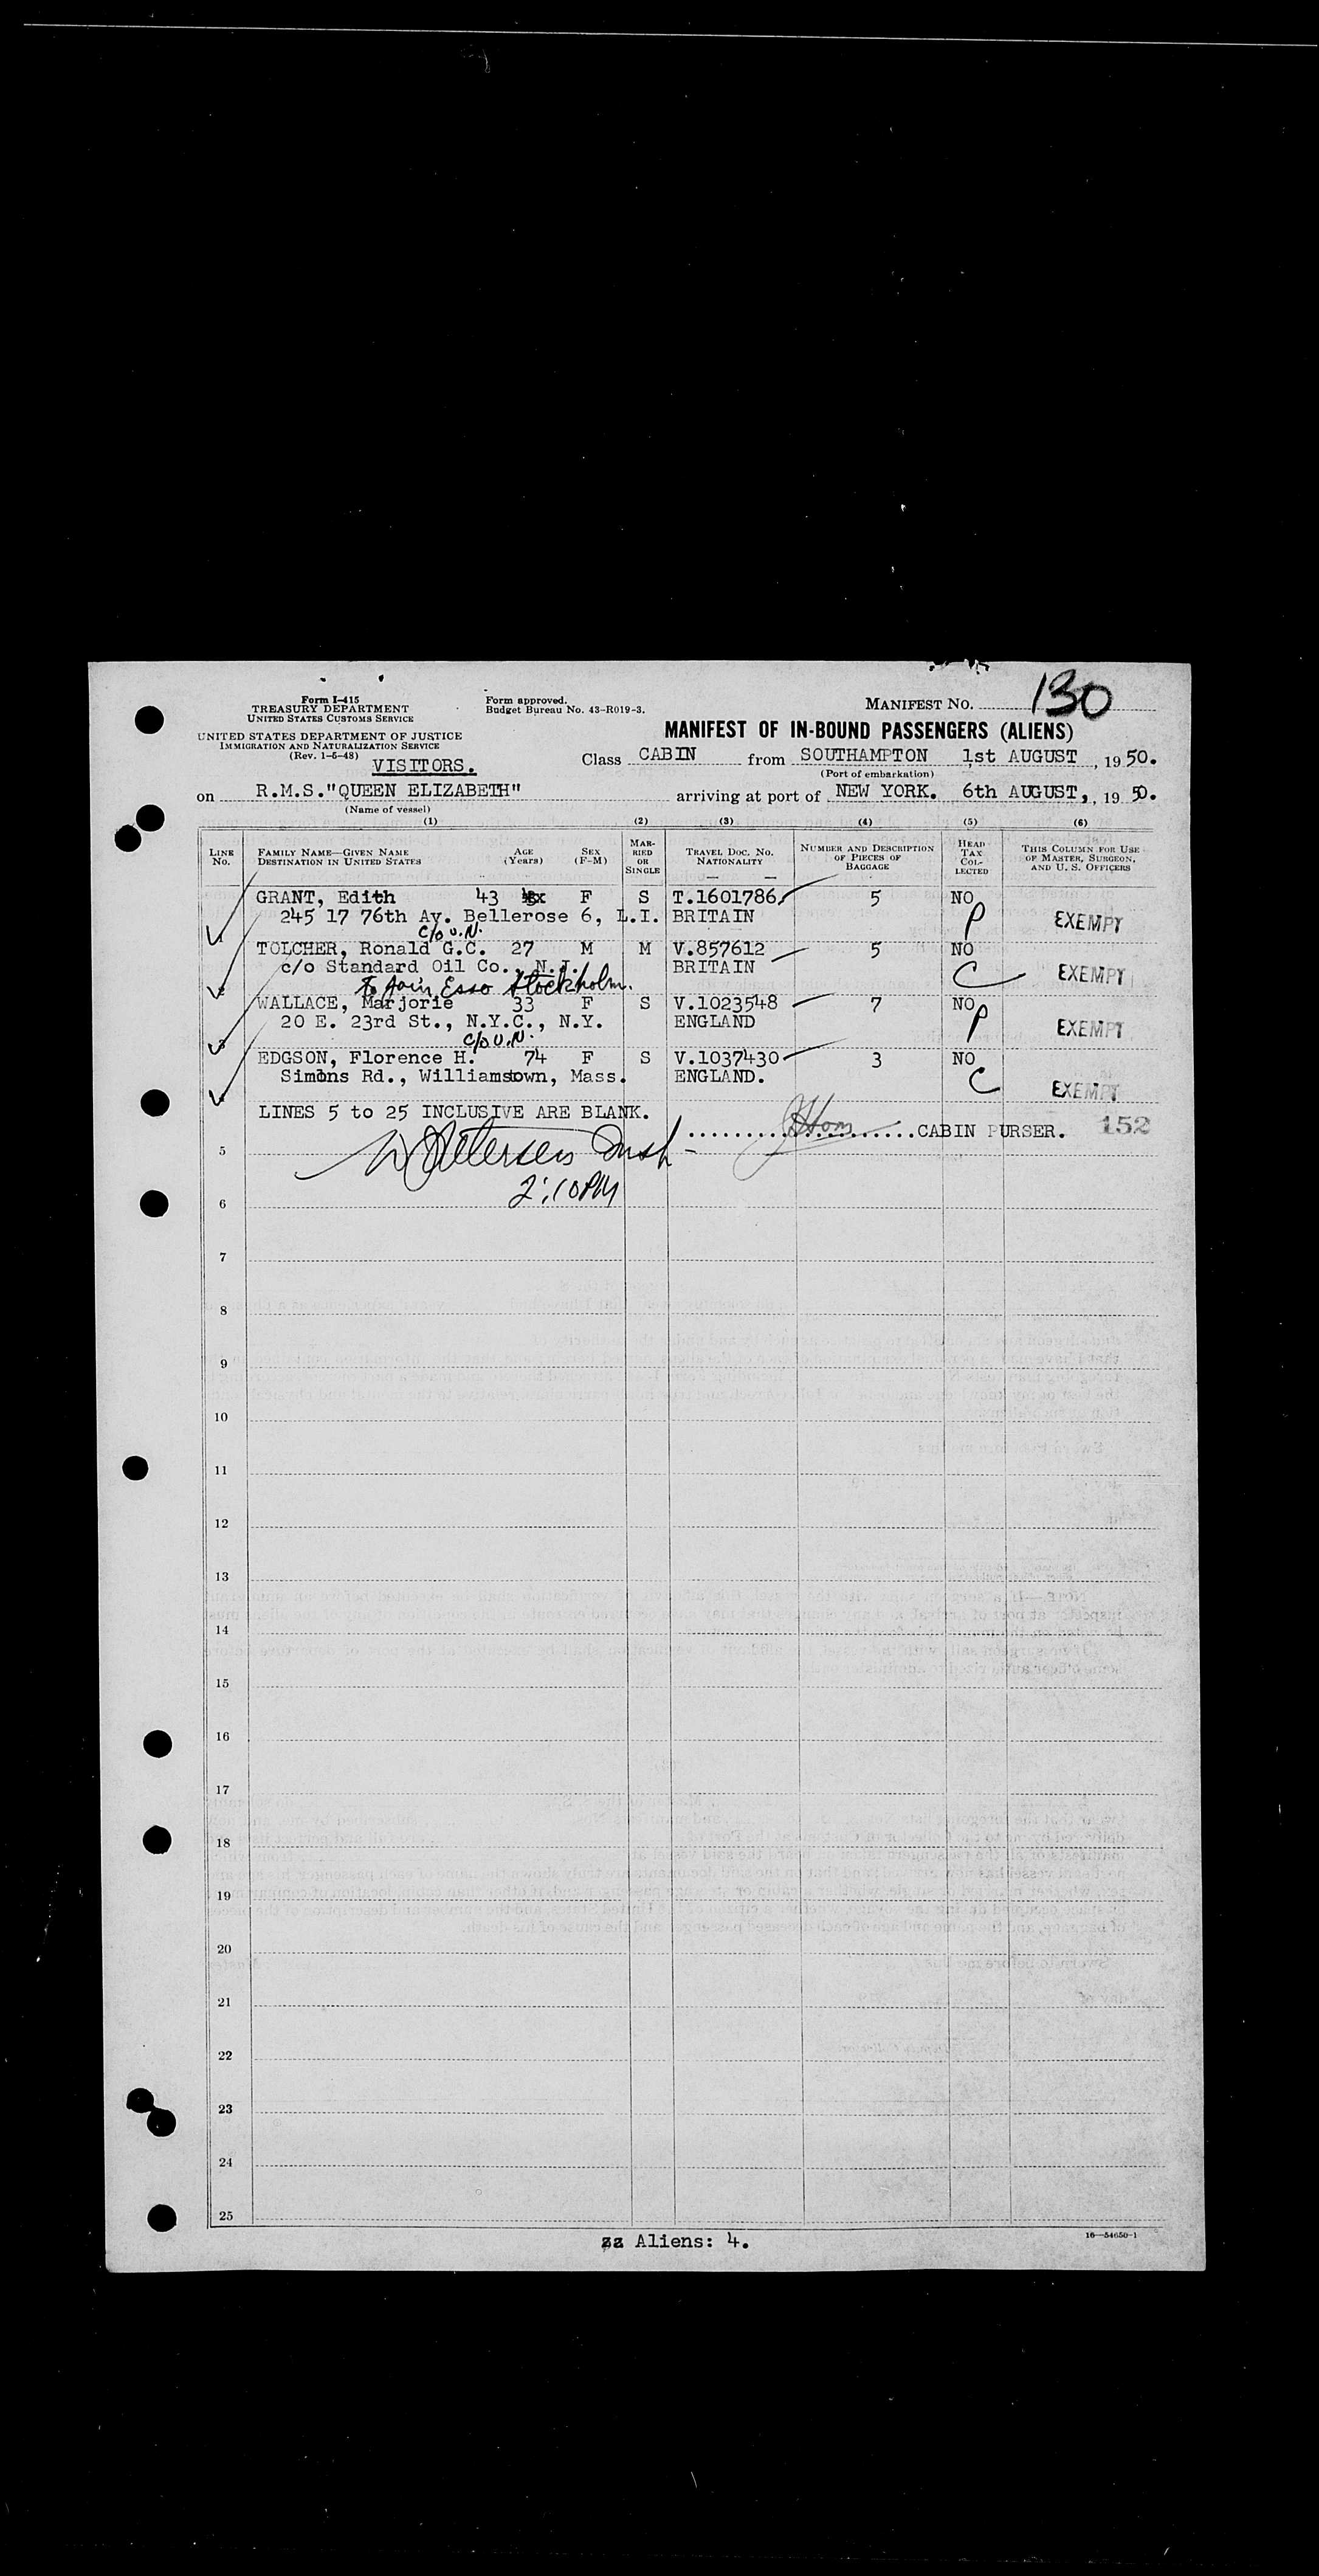 Form I-415
TREASURY DEPARTMENT
UNITED STATES CUSTOMS SERVICE
UNITED STATES DEPARTMENT OF JUSTICE
IMMIGRATION AND NATURALIZATION SERVICE
(Rev. 1-6-48)
VISITORS.
Form approved.
Budget Bureau No. 43-R019-3.
MANIFEST NO. 130
MANIFEST OF IN-BOUND PASSENGERS (ALIENS)
Class CABIN from SOUTHAMPTON 1st AUGUST, 1950.
(Port of embarkation)
on R.M.S."QUEEN ELIZABETH" arriving at port of NEW YORK. 6th AUGUST, , 1950.
(Name of vessel)
(1) (2) (3) (4) (5) (6)
LINE No. FAMILY NAME—GIVEN NAME DESTINATION IN UNITED STATES AGE (Years) SEX (F-M) MARRIED OR SINGLE TRAVEL DOC. NO. NATIONALITY NUMBER AND DESCRIPTION OF PIECES OF BAGGAGE HEAD TAX COLLECTED THIS COLUMN FOR USE OF MASTER, SURGEON, AND U. S. OFFICERS
GRANT, Edith 43 F S T.1601786 5 NO
245 17 76th Av. Bellerose 6, L.I. BRITAIN P EXEMPT
c/o U.N.
TOLCHER, Ronald G.C. 27 M M V.857612 5 NO
c/o Standard Oil Co., N.J. BRITAIN C EXEMPT
To Join Esso Stockholm.
WALLACE, Marjorie 33 F S V.1023548 7 NO
20 E. 23rd St., N.Y.C., N.Y. ENGLAND P EXEMPT
c/o U.N.
EDGSON, Florence H. 74 F S V.1037430 3 NO
Simons Rd., Williamstown, Mass. ENGLAND. C EXEMPT
LINES 5 to 25 INCLUSIVE ARE BLANK.
CABIN PURSER. 152
2:10PM
5
6
7
8
9
10
11
12
13
14
15
16
17
18
19
20
21
22
23
24
25
Aliens: 4.
16—54650-1